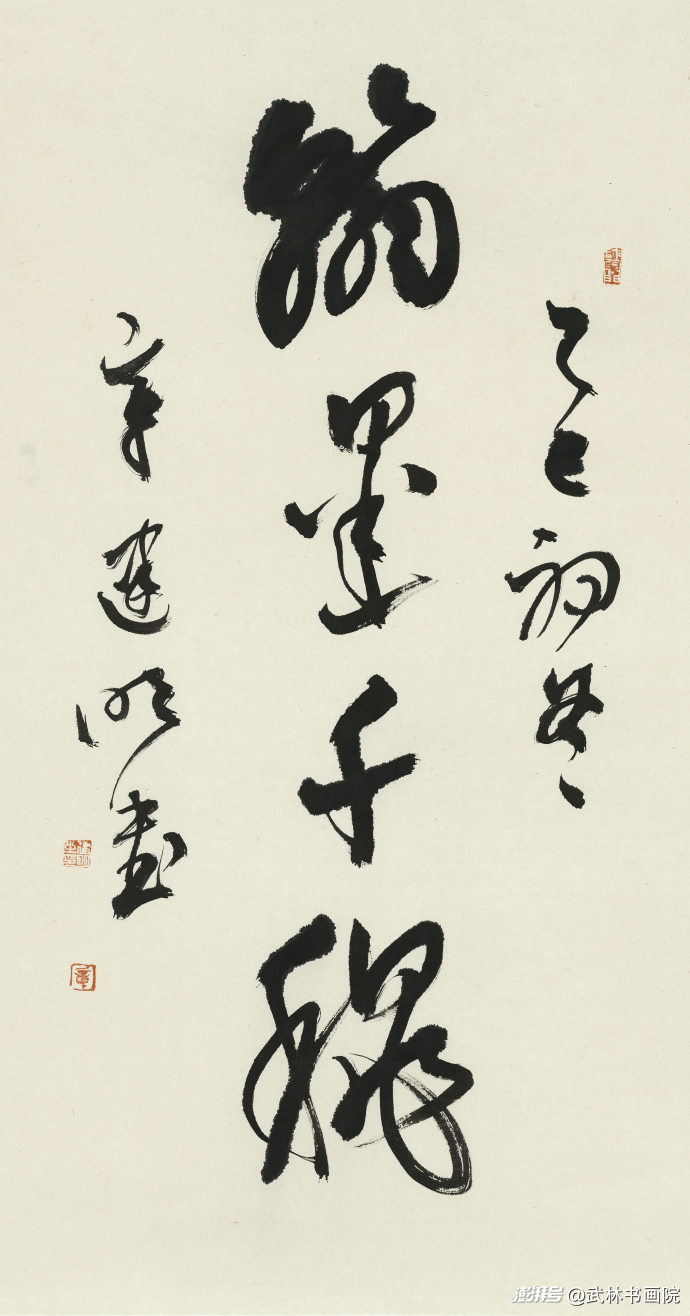 乙巳初冬
翰墨千穐
章建明書
章
澎湃号 @武林书画院